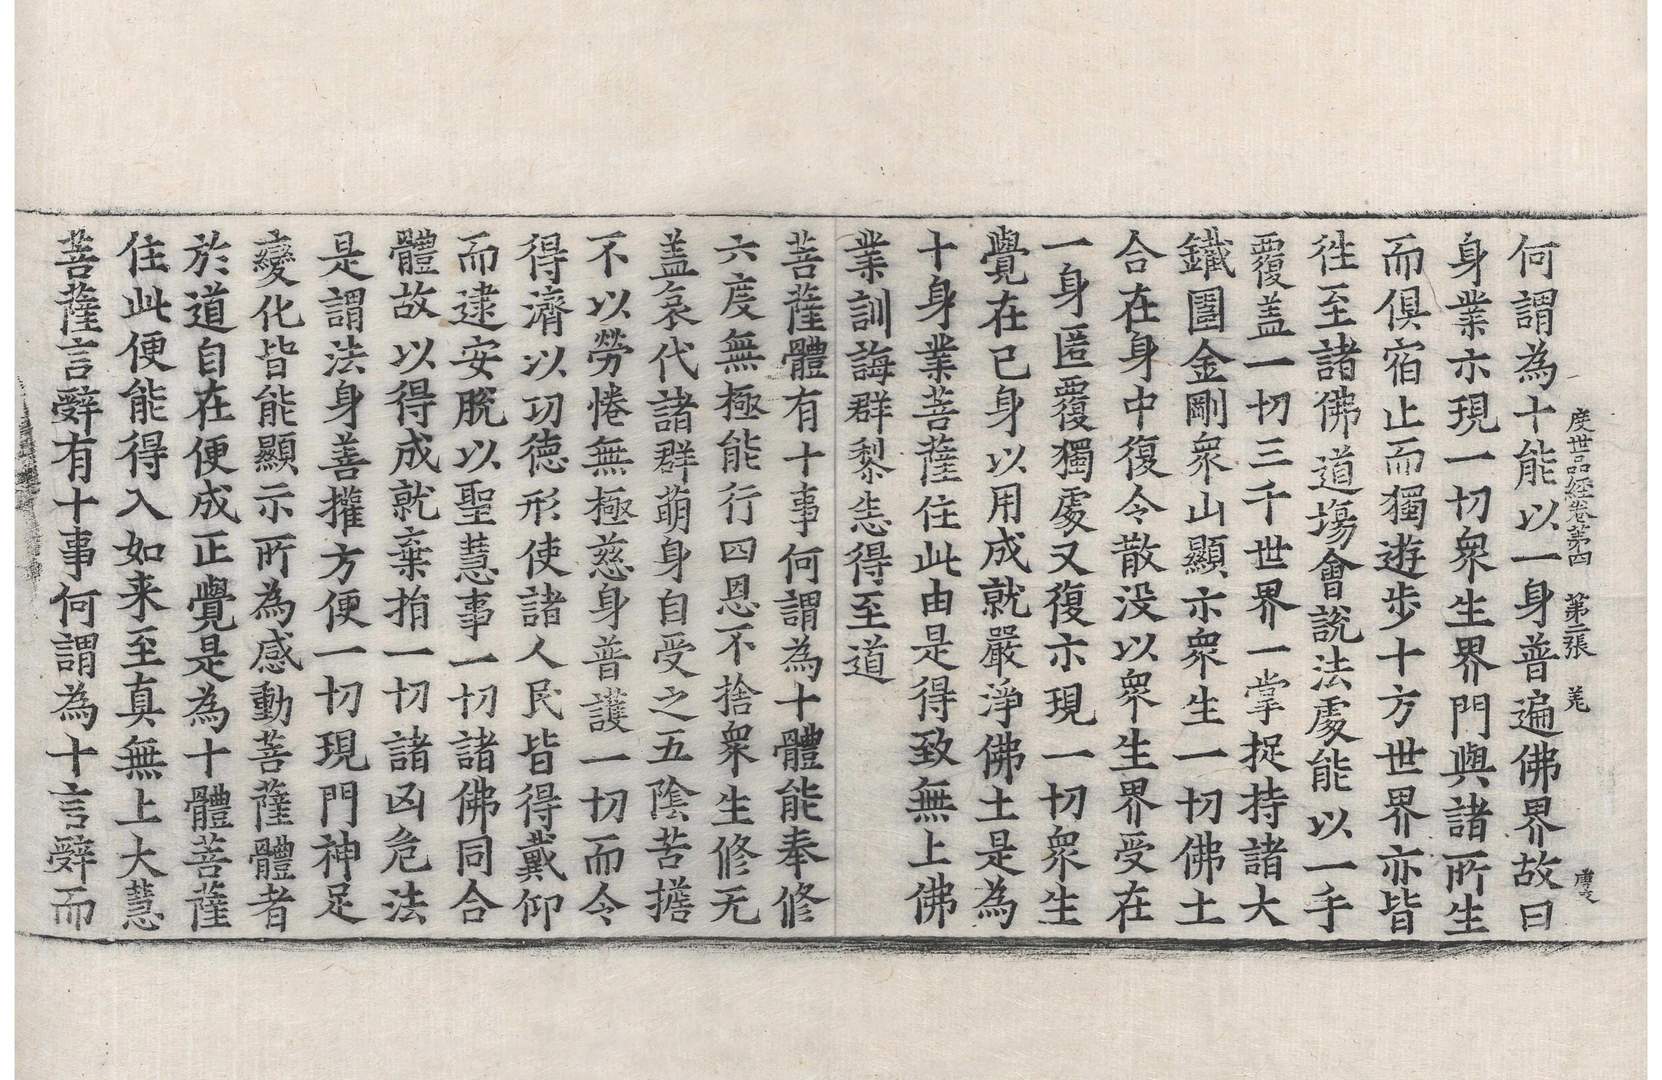 何謂為十能以一身普遍佛界故曰
度世品經卷第四　第二張　羌
身業示現一切衆生界門與諸所生
而俱宿止而獨遊步十方世界亦皆
徃至諸佛道塲會說法處能以一手
覆盖一切三千世界一掌捉持諸大
鐵圍金剛衆山顯示衆生一切佛土
合在身中復令散没以衆生界受在
一身匿覆獨處又復示現一切衆生
覺在已身以用成就嚴淨佛土是為
十身業菩薩住此由是得致無上佛
業訓誨群黎恙得至道
菩薩體有十事何謂為十體能奉修
六度無極能行四恩不捨衆生修无
盖哀代諸群萌身自受之五陰苦擔
不以勞惓無極慈身普護一切而令
得濟以功德形使諸人民皆得戴仰
而逮安脫以聖慧事一切諸佛同合
體故以得成就棄捐一切諸凶危法
是謂法身善攉方便一切現門神足
變化皆能顯示所為感動菩薩體者
於道自在便成正覺是為十體菩薩
住此便能得入如来至真無上大慧
菩薩言辭有十事何謂為十言辭而